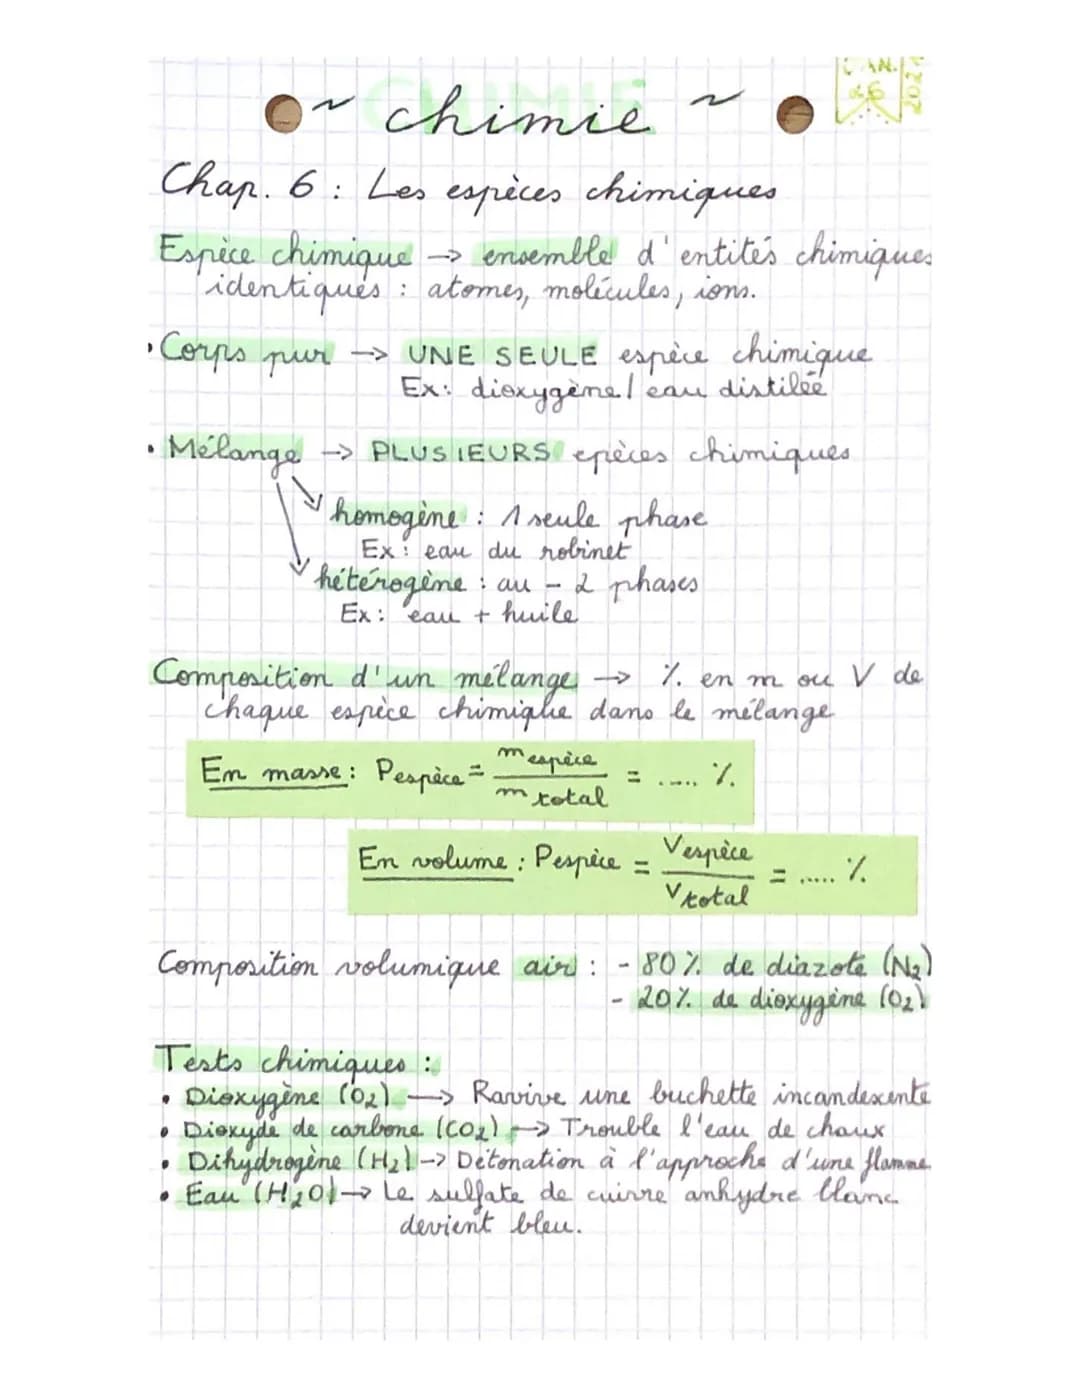 CHIMIE
~ chimie ~
JAN.
26
202
Chap. 6 : Les espèces chimiques
Espèce chimique → ensemble d'entités chimiques
identiques : atomes, molécules, ions.
• Corps pur → UNE SEULE espèce chimique
Ex: dioxygène / eau distilée
• Mélange → PLUSIEURS epèces chimiques
homogène : 1 seule phase
Ex : eau du robinet
hétérogène : au - 2 phases
Ex : eau + huile
Composition d'un mélange → % en m ou V de
chaque espèce chimique dans le mélange
En masse : Pespèce = mespèce / mtotal = ..... %
En volume : Pespèce = Vespèce / Vtotal = ..... %
Composition volumique air : - 80% de diazote (N2)
- 20% de dioxygène (O2)
Tests chimiques :
• Dioxygène (O2) → Ravive une buchette incandescente
• Dioxyde de carbone (CO2) → Trouble l'eau de chaux
• Dihydrogène (H2) → Détonation à l'approche d'une flamme
• Eau (H2O) → Le sulfate de cuivre anhydre blanc
devient bleu.